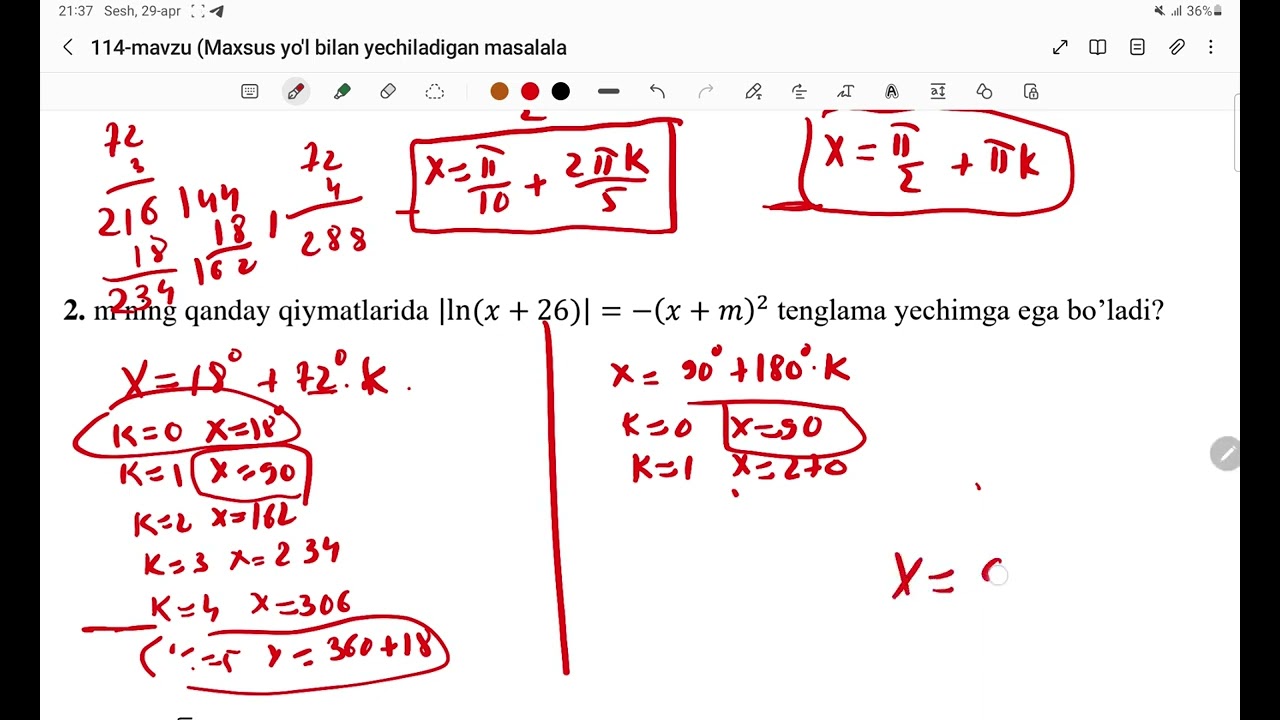 21:37 Sesh, 29-apr 36%
114-mavzu (Maxsus yo'l bilan yechiladigan masalala
72
3
216
18
234
144
18
162
72
4
288
x = π/10 + 2πk/5
x = π/2 + πk
2. m ning qanday qiymatlarida |ln(x + 26)| = −(x + m)² tenglama yechimga ega bo’ladi?
x = 18° + 72° · k .
k=0 x=18°
k=1 x=90
k=2 x=162
k=3 x=234
k=4 x=306
x = 360+18
x = 90° + 180° · k
k=0 x=90
k=1 x=270
x =